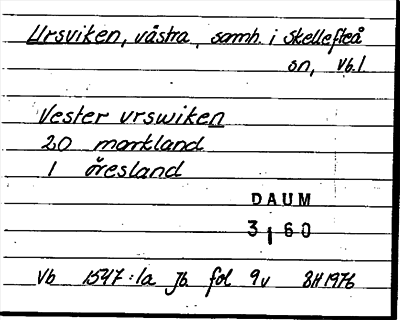 Ursviken, västra, samh. i Skellefteå
on, Vb.l.
Vester urswiken
20 markland
1 öresland
DAUM
3160
Vb 1547:1a Jb fol 9v BH 1976